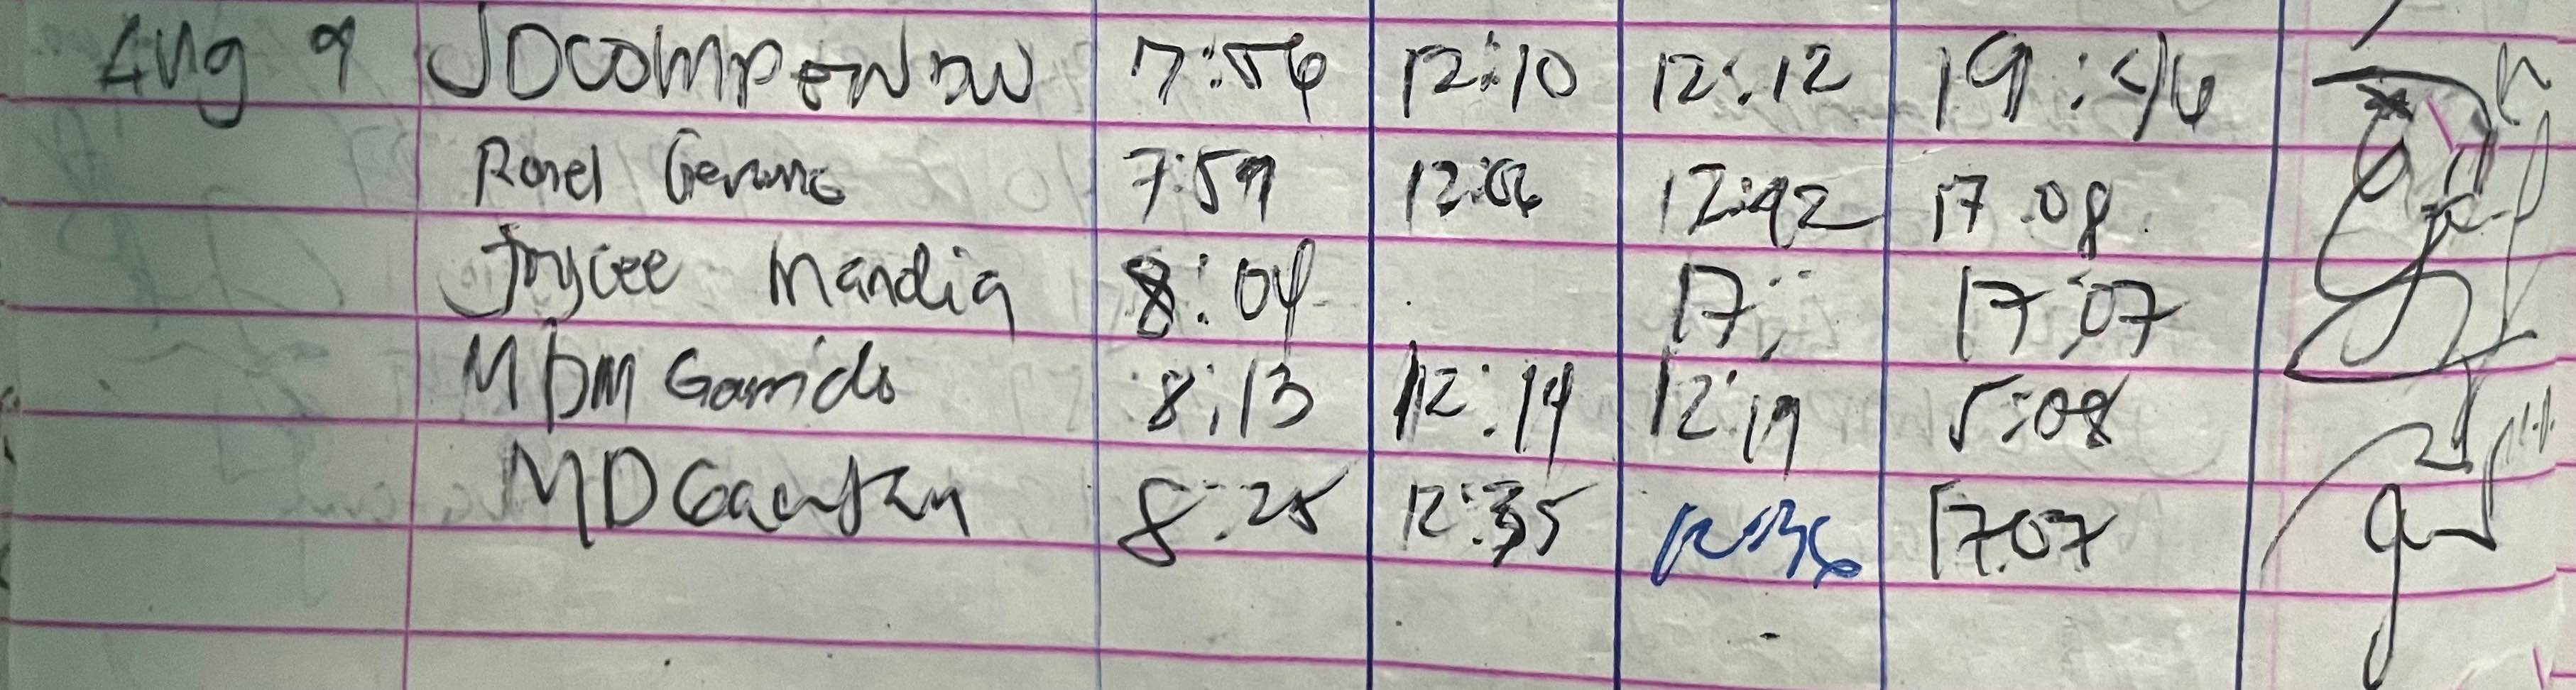 Aug 9 JD 7:56 12:10 12:12 19:46
Ronel 7:59 12:06 12:42 17:08
Joycee Mandia 8:04 17: 17:07
MDM Garrido 8:13 12:14 12:19 5:08
MD 8:25 12:35 12:36 17:07